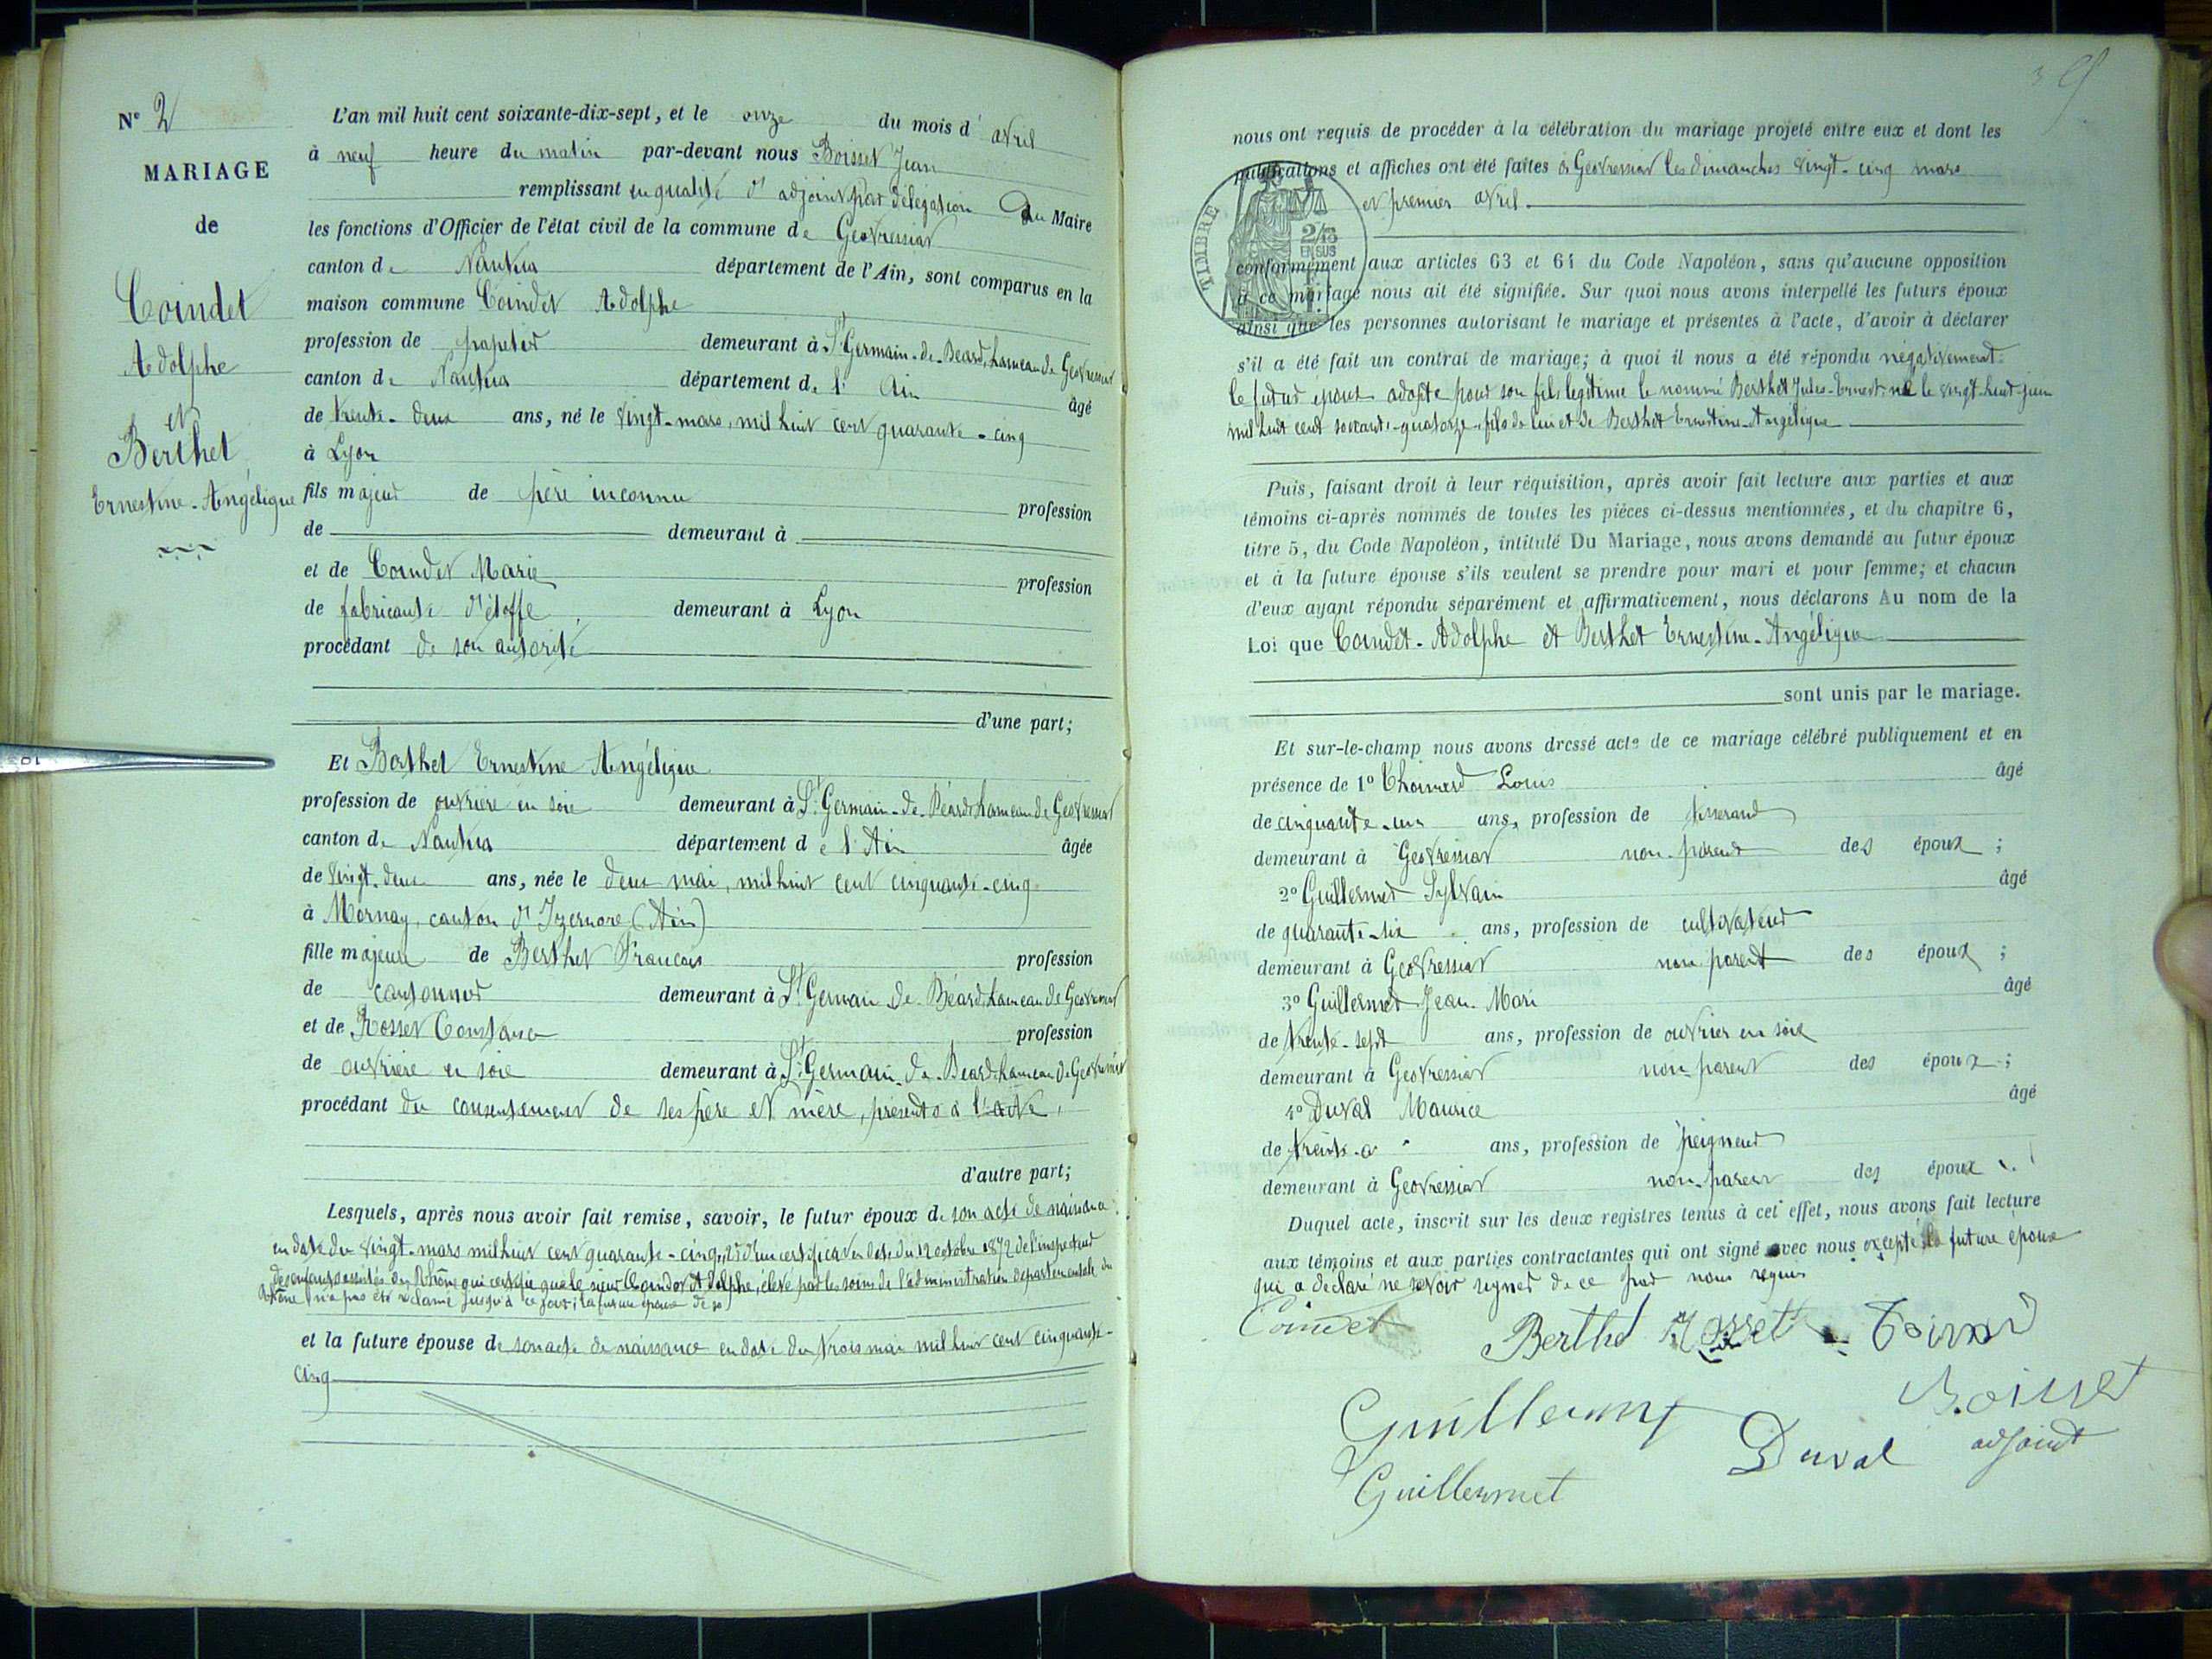 N° 2
MARIAGE
de
Coindet
Adolphe
et
Berthet
Ernestine-Angélique
L'an mil huit cent soixante-dix-sept, et le onze du mois d' avril
à neuf heure du matin par-devant nous Boisset Jean
remplissant en qualité d' adjoint par délégation du Maire
les fonctions d'Officier de l'état civil de la commune de Géovressiat
canton de Nantua département de l'Ain, sont comparus en la
maison commune Coindet Adolphe
profession de papetier demeurant à St Germain-de-Béard, hameau de Géovressiat
canton de Nantua département de l' Ain âgé
de trente-deux ans, né le vingt-mars, mil huit cent quarante-cinq
à Lyon
fils majeur de père inconnu profession
de demeurant à
et de Coindet Marie profession
de fabricante d'étoffe demeurant à Lyon
procédant de son autorité
d'une part;
Et Berthet Ernestine Angélique
profession de ouvrière en soie demeurant à St Germain-de-Béard, hameau de Géovressiat
canton de Nantua département de l'Ain âgée
de vingt-deux ans, née le deux mai, mil huit cent cinquante-cinq
à Mornay, canton d'Izernore (Ain)
fille majeure de Berthet François profession
de cantonnier demeurant à St Germain-de-Béard, hameau de Géovressiat
et de Rosset Constance profession
de ouvrière en soie demeurant à St Germain-de-Béard, hameau de Géovressiat
procédant du consentement de ses père et mère, présents à l'acte,
d'autre part;
Lesquels, après nous avoir fait remise, savoir, le futur époux de son acte de naissance
en date du vingt-mars mil huit cent quarante-cinq, 2° d'un certificat en date du 12 octobre 1872 de l'inspecteur
des enfants assistés du Rhône qui certifie que le sieur Coindet Adolphe, élevé par les soins de l'administration départementale du
Rhône n'a pas été réclamé jusqu'à ce jour; la future épouse de so
et la future épouse de son acte de naissance en date du trois mai mil huit cent cinquante-
cinq
nous ont requis de procéder à la célébration du mariage projeté entre eux et dont les
publications et affiches ont été faites à Géovressiat les dimanches vingt-cinq mars
et premier avril.
TIMBRE
2/10
EN SUS
conformément aux articles 63 et 64 du Code Napoléon, sans qu'aucune opposition
à ce mariage nous ait été signifiée. Sur quoi nous avons interpellé les futurs époux
ainsi que les personnes autorisant le mariage et présentes à l'acte, d'avoir à déclarer
s'il a été fait un contrat de mariage; à quoi il nous a été répondu négativement.
le futur époux adopte pour son fils légitime le nommé Berthet Jules-Ernest, né le vingt-huit juin
mil huit cent soixante-quatorze, fils de lui et de Berthet Ernestine-Angélique
Puis, faisant droit à leur réquisition, après avoir fait lecture aux parties et aux
témoins ci-après nommés de toutes les pièces ci-dessus mentionnées, et du chapitre 6,
titre 5, du Code Napoléon, intitulé Du Mariage, nous avons demandé au futur époux
et à la future épouse s'ils veulent se prendre pour mari et pour femme; et chacun
d'eux ayant répondu séparément et affirmativement, nous déclarons Au nom de la
Loi que Coindet-Adolphe et Berthet Ernestine-Angélique
sont unis par le mariage.
Et sur-le-champ nous avons dressé acte de ce mariage célébré publiquement et en
présence de 1° Thoinard Louis âgé
de cinquante-un ans, profession de tisserand
demeurant à Géovressiat non-parent des époux ;
2° Guillermet Sylvain âgé
de quarante-six ans, profession de cultivateur
demeurant à Géovressiat non parent des époux ;
3° Guillermet Jean-Mari âgé
de trente-sept ans, profession de ouvrier en soie
demeurant à Géovressiat non-parent des époux ;
4° Duval Maurice âgé
de trente ans, profession de peigneur
demeurant à Géovressiat non-parent des époux
Duquel acte, inscrit sur les deux registres tenus à cet effet, nous avons fait lecture
aux témoins et aux parties contractantes qui ont signé avec nous excepté la future épouse
qui a déclaré ne savoir signer de ce par nous requis
Coindet Berthet Rosset
Guillermet Boisset
Duval adjoint
Guillermet